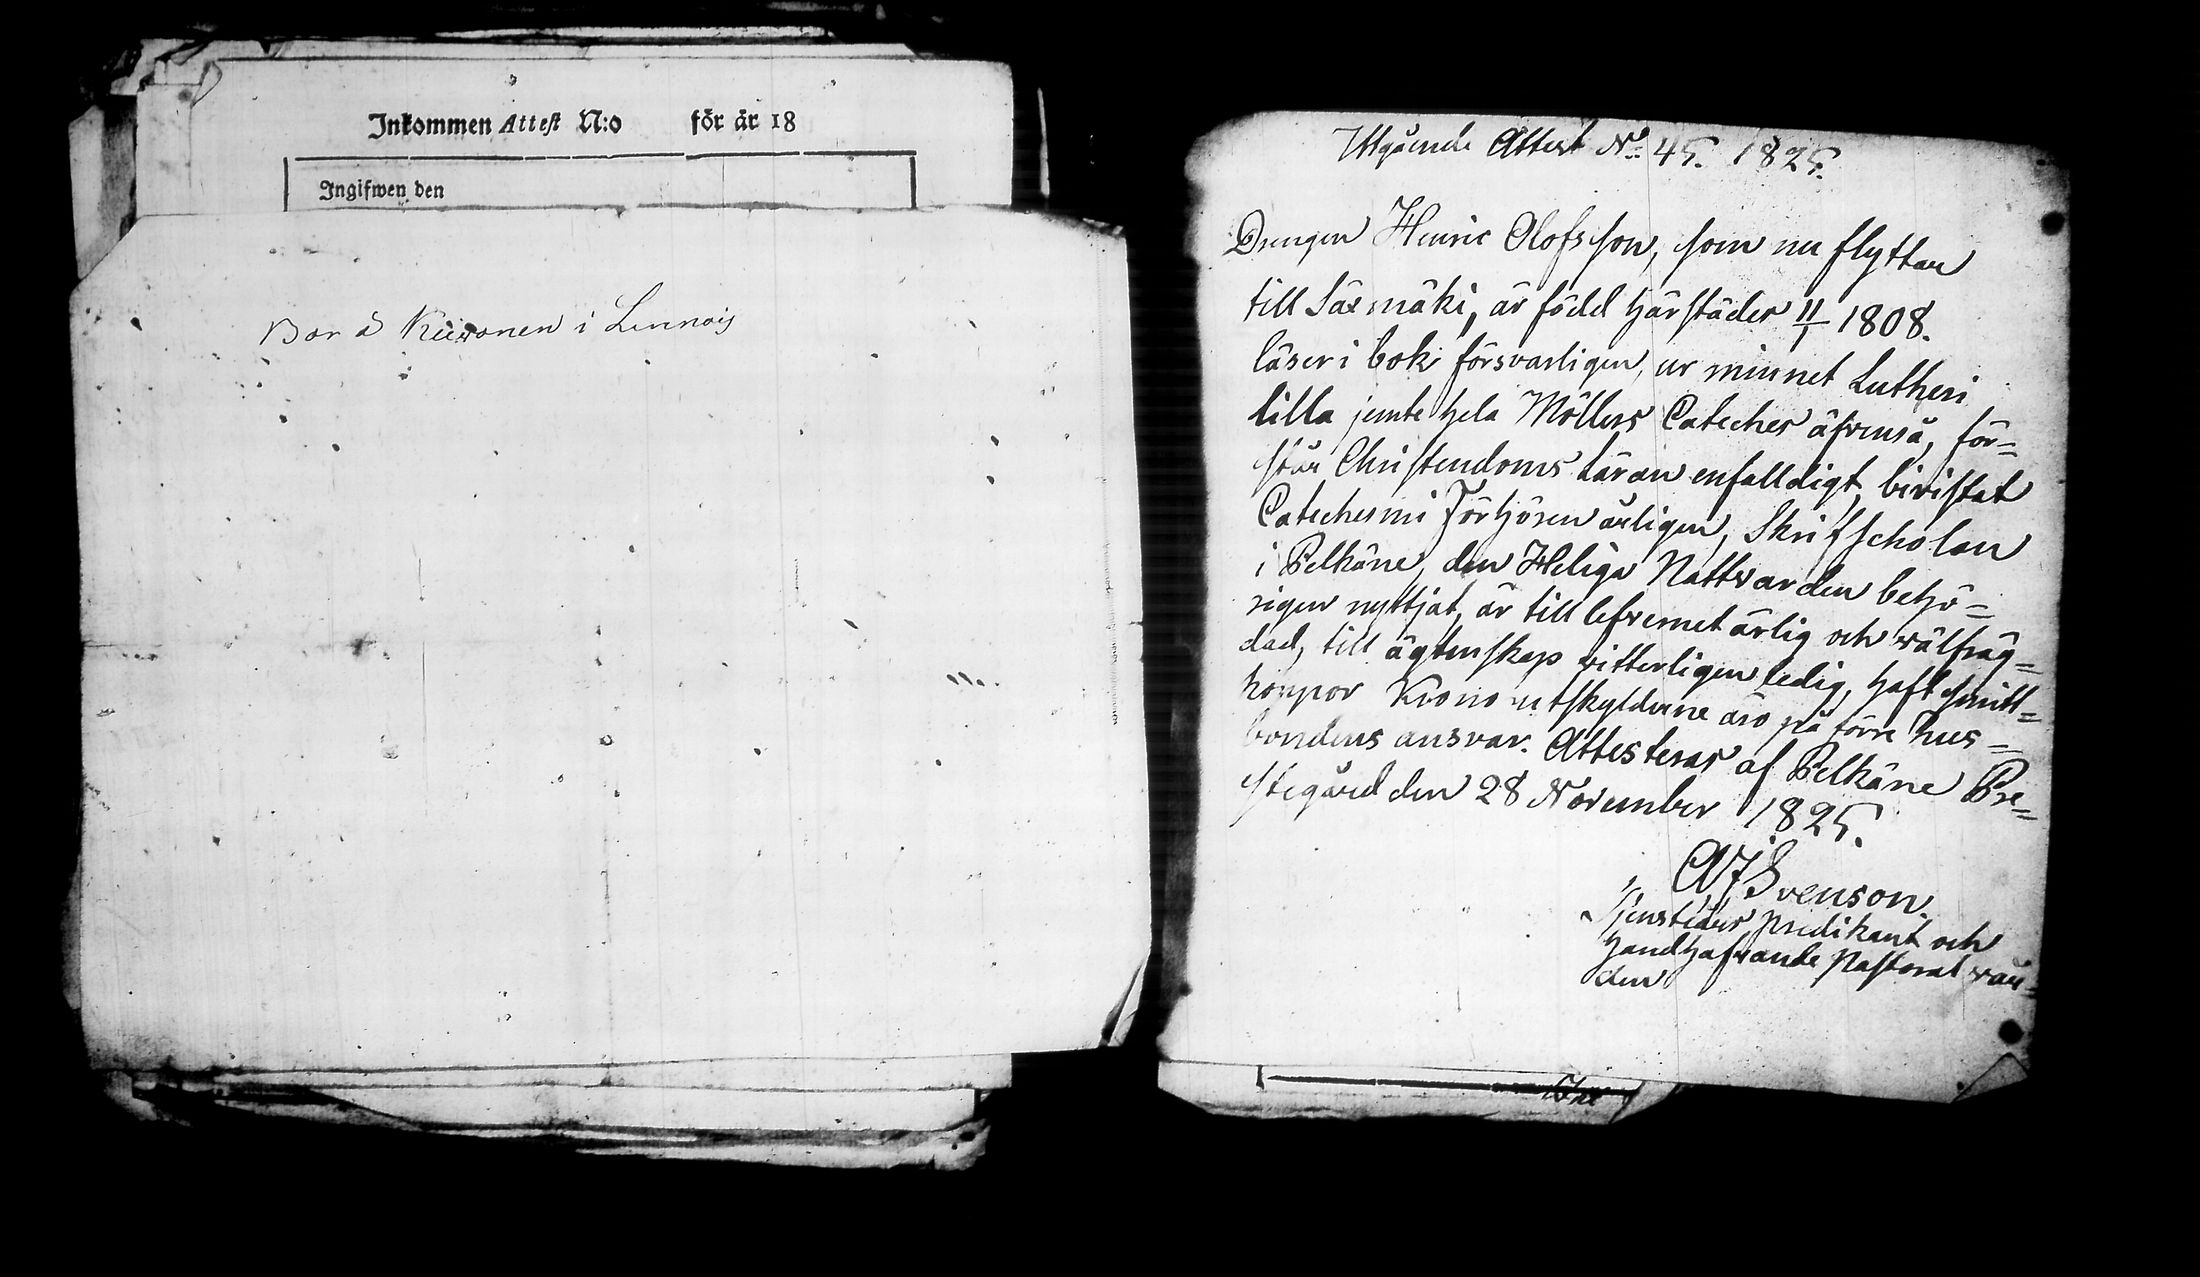 Inkommen Attest N:o för år 18
Ingifwen den
Bor å Kiiwonen i Linnois
Utgående Attest No. 45. 1825.
Drengen Henric Olofsson, som nu flyttar
till Säxmäki, är född härstädes 11/1 1808.
läser i bok försvarligen, ur minnet Lutheri
lilla jemte hela Möllers Cateches äfvenså, för=
står Christendoms Läran enfalldigt, bivistat
Catechesmi Förhören årligen, Skrifscholan
i Pelkäne, den Heliga Nattvarden behö=
rigen nyttjat, är till lefvernet ärlig och välfräg=
dad, till ägtenskap vitterligen ledig, haft smitt=
koppor Krono utskylderne äro på förre hus=
bondens ansvar. Attesteras af Pelkäne Pre=
stegård den 28 November 1825.
Svenson
Tjenstgör. predikant och
handhafvande Pastoral vår=
den